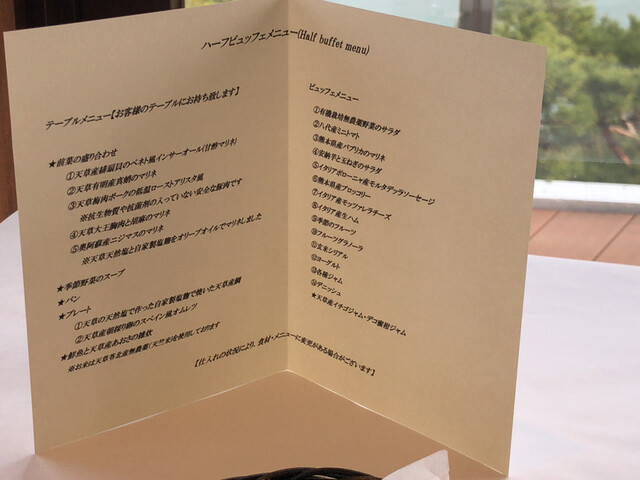 ハーフビュッフェメニュー(Half buffet menu)
テーブルメニュー【お客様のテーブルにお持ち致します】
★前菜の盛り合わせ
①天草産緋扇貝のベネト風インサーオール(甘酢マリネ)
②天草有明産真蛸のマリネ
③天草梅肉ポークの低温ローストアリスタ風
※抗生物質や抗菌剤の入っていない安全な豚肉です
④天草大王胸肉と胡麻のマリネ
⑤奥阿蘇産ニジマスのマリネ
※天草天然塩と自家製塩麹をオリーブオイルでマリネしました
★季節野菜のスープ
★パン
★プレート
①天草の天然塩で作った自家製塩麹で焼いた天草鯛
②天草産朝採り卵のスペイン風オムレツ
★鮮魚と天草産あおさの雑炊
※お米は天草苓北産無農薬(天竺米)を使用しております
ビュッフェメニュー
①有機栽培無農薬野菜のサラダ
②八代産ミニトマト
③熊本県産パプリカのマリネ
④安納芋と玉ねぎのサラダ
⑤イタリアボローニャ産モルタデッラソーセージ
⑥熊本県産ブロッコリー
⑦イタリア産モッツァレラチーズ
⑧イタリア産生ハム
⑨季節のフルーツ
⑩フルーツグラノーラ
⑪玄米シリアル
⑫ヨーグルト
⑬各種ジャム
⑭デニッシュ
★天草産イチゴジャム・デコ蜜柑ジャム
【仕入れの状況により、食材・メニューに変更がある場合がございます】